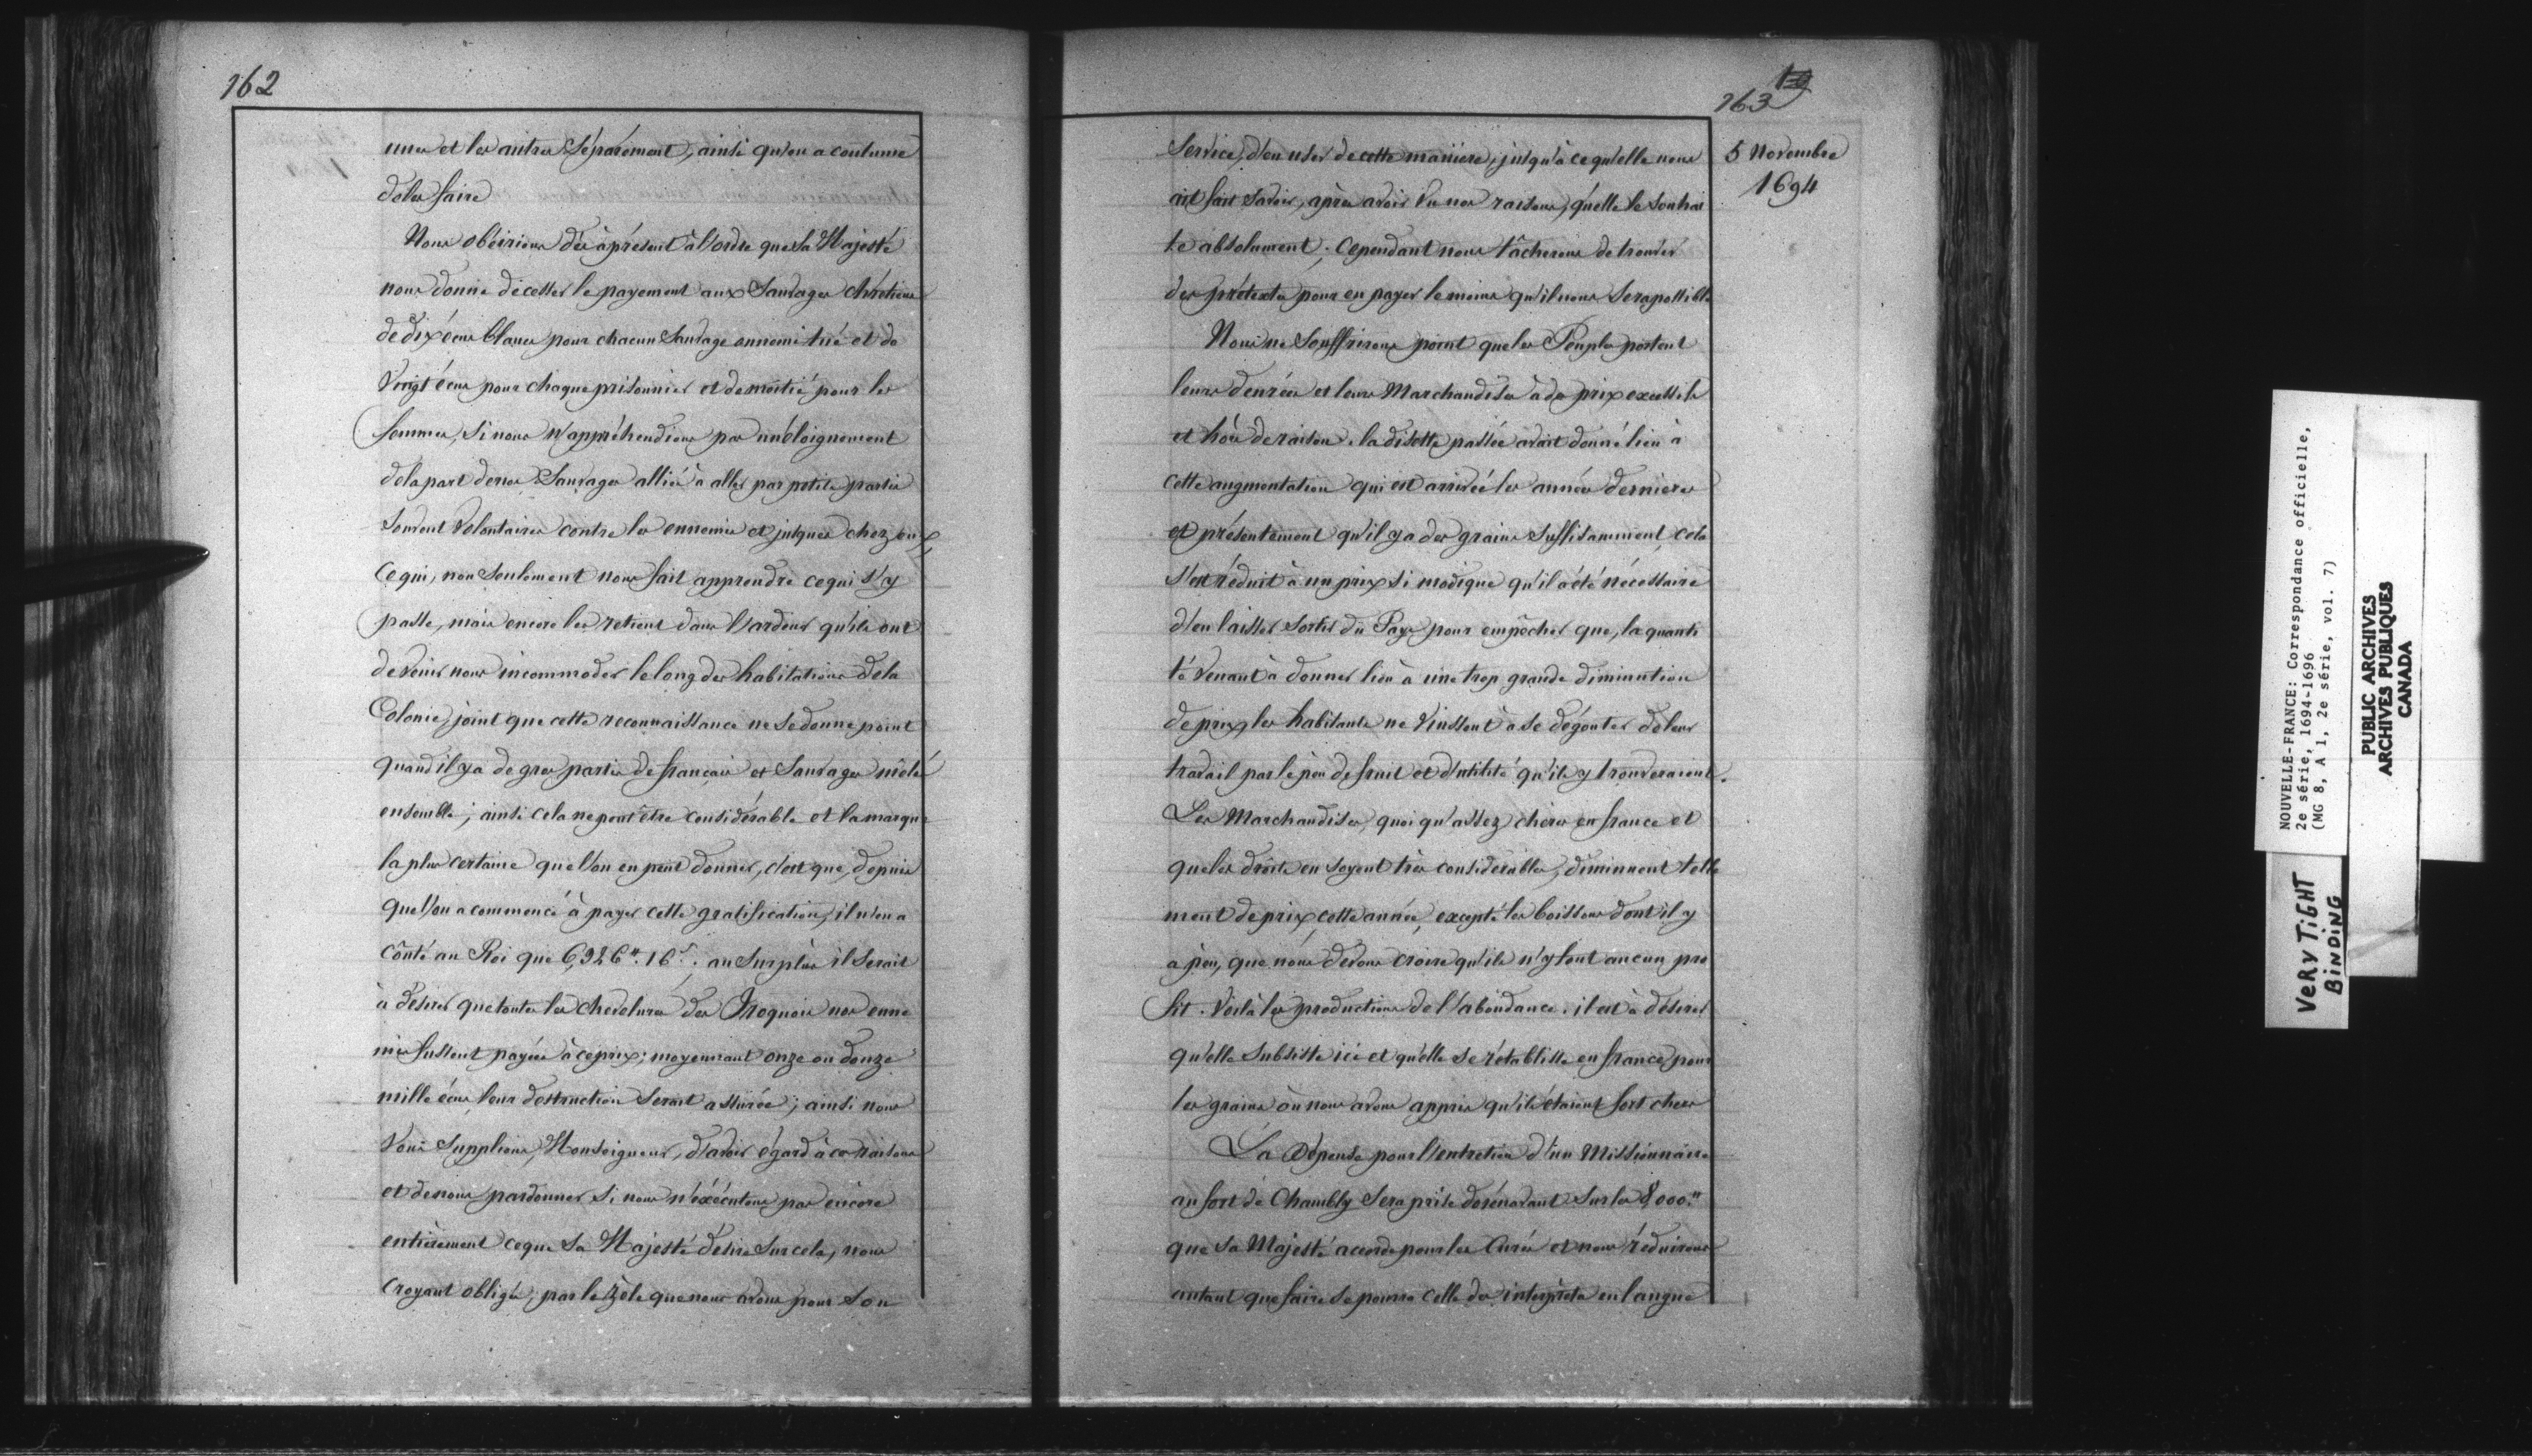 162
unes et les autres séparément, ainsi qu'on a coutume
de les faire
Nous obéirions dès à présent à l'ordre que Sa Majesté
nous donne de cesser le payement aux Sauvages chrétiens
de dix écus blancs pour chacun Sauvage ennemi tué et de
Vingt écus pour chaque prisonnier et de moitié pour les
femmes, si nous n'appréhendions pas un éloignement
de la part de nos Sauvages alliés à aller par petits partis
Souvent Volontaires contre les ennemis et jusques chez eux
Ce qui, non Seulement nous fait apprendre ce qui s'y
passe, mais encore les retient dans l'ardeur qu'ils ont
de Venir nous incommoder le long des habitations de la
Colonie, joint que cette reconnaissance ne se donne point
quand il y a de gros partis de français et Sauvages mêlés
ensemble; ainsi cela ne peut être considérable et la marque
la plus certaine que l'on en peut donner, c'est que, depuis
que l'on a commencé à payer cette gratification, il n'en a
coûté au Roi que 6,926tt. 16s. au Surplus il Serait
à désirer que toutes les chevelures des Iroquois nos enne
mis fussent payées à ce prix; moyennant onze ou douze
mille écus leur destruction serait assurée; ainsi nous
Vous Supplions, Monseigneur, d'avoir égard à ces raisons
et de nous pardonner si nous n'éxécutons pas encore
entièrement ce que Sa Majesté désire sur cela, nous
Croyant obligés, par le Zèle que nous avons pour son
163
5 Novembre
1694
Service, d'en user de cette manière, jusqu'à ce qu'elle nous
ait fait savoir, après avoir Vu nos raisons, qu'elle le souhai
te absolument; Cependant nous tâcherons de trouver
des prétextes pour en payer le moins qu'il nous Sera possible
Nous ne Souffrirons point que les Peuples portent
leurs denrées et leurs Marchandises à des prix excessifs
et hors de raison. la disette passée avait donné lieu à
cette augmentation qui est arrivée les années dernieres
et présentement qu'il y a des grains Suffisamment, cela
s'est réduit à un prix si modique qu'il a été nécessaire
d'en laisser sortir du Pays pour empêcher que, la quanti
té Venant à donner lieu à une trop grande diminution
de prix, les habitants ne Vinssent à se dégouter de leur
travail par le peu de fruit et d'utilité qu'ils y trouveraient.
Les Marchandises, quoi qu'assez chères en france et
que les droits en soyent très considérables, diminuent telle
ment de prix cette année, excepté les boissons dont il y
a peu, que nous devons croire qu'ils n'y font aucun pro
fit. Voilà les productions de l'abondance. il est à désirer
qu'elle subsiste ici et qu'elle se rétablisse en france pour
les grains où nous avons appris qu'ils étaient fort chers
La dépense pour l'entretien d'un Missionnaire
au fort de Chambly Sera prise dorénavant Sur les 8,000tt
que Sa Majesté accorde pour les Curés et nous réduirons
autant que faire se pourra celle des interprètes en langue
NOUVELLE-FRANCE: Correspondance officielle,
2e série, 1694-1696
(MG 8, A 1, 2e série, vol. 7)
PUBLIC ARCHIVES
ARCHIVES PUBLIQUES
CANADA
VERY TIGHT
BINDING